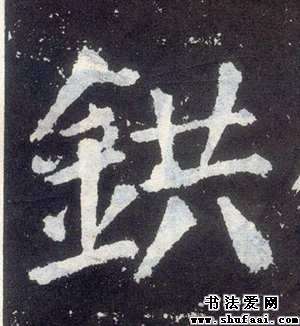 鉷
书法爱网
www.shufaai.com